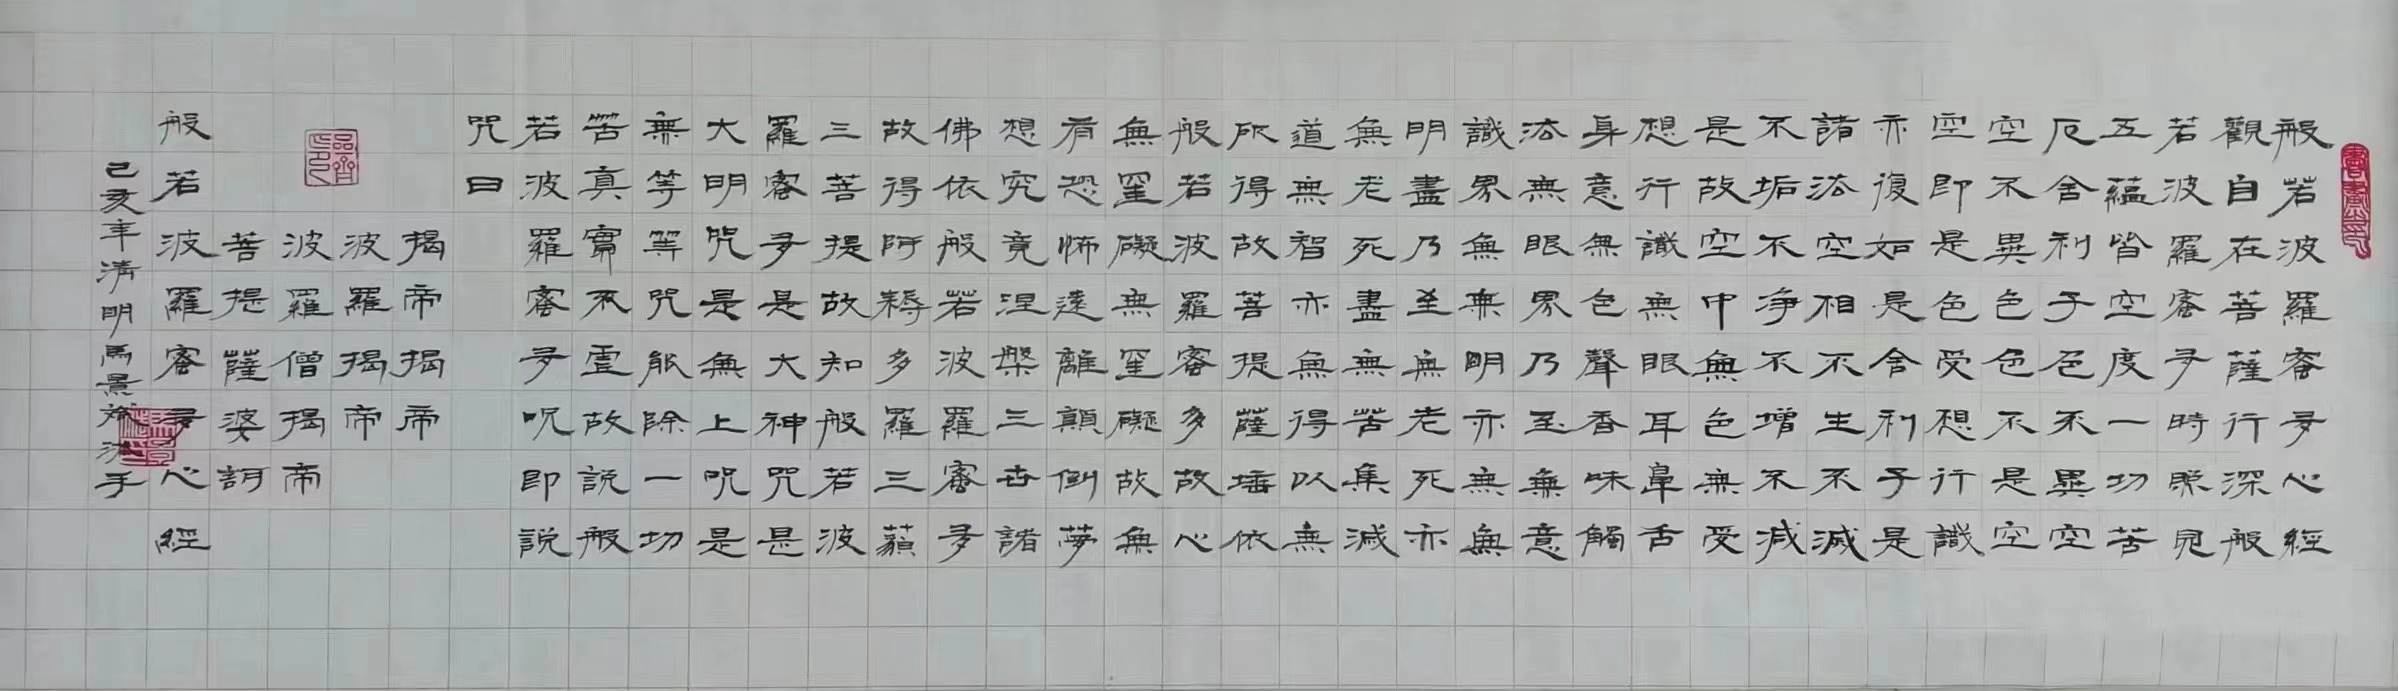 般若波羅蜜多心經
觀自在菩薩行深般
若波羅蜜多時照見
五蘊皆空度一切苦
厄舍利子色不異空
空不異色色不是空
空即是色受想行識
亦復如是舍利子是
諸法空相不生不滅
不垢不净不增不減
是故空中無色無受
想行識無眼耳鼻舌
身意無色聲香味觸
法無眼界乃至無意
識界無無明亦無無
明盡乃至無老死亦
無老死盡無苦集滅
道無智亦無得以無
所得故菩提薩埵依
般若波羅蜜多故心
無罣礙無罣礙故無
有恐怖遠離顛倒夢
想究竟涅槃三世諸
佛依般若波羅蜜多
故得阿耨多羅三藐
三菩提故知般若波
羅蜜多是大神咒是
大明咒是無上咒是
無等等咒能除一切
苦真實不虛故說般
若波羅蜜多咒即説
咒曰
揭帝揭帝
波羅揭帝
波羅僧揭帝
菩提薩婆訶
般若波羅蜜多心經
己亥年清明馬景沐手